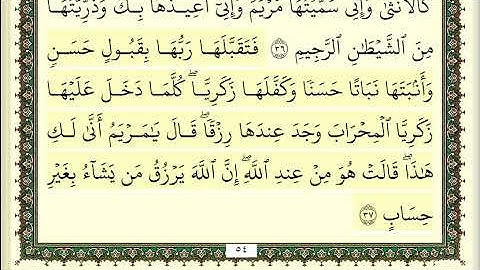 كَٱلْأُنثَىٰ وَإِنِّى سَمَّيْتُهَا مَرْيَمَ وَإِنِّىٓ أُعِيذُهَا بِكَ وَذُرِّيَّتَهَا
مِنَ ٱلشَّيْطَٰنِ ٱلرَّجِيمِ ٣٦ فَتَقَبَّلَهَا رَبُّهَا بِقَبُولٍ حَسَنٍ
وَأَنۢبَتَهَا نَبَاتًا حَسَنًا وَكَفَّلَهَا زَكَرِيَّا ۖ كُلَّمَا دَخَلَ عَلَيْهَا
زَكَرِيَّا ٱلْمِحْرَابَ وَجَدَ عِندَهَا رِزْقًا ۖ قَالَ يَٰمَرْيَمُ أَنَّىٰ لَكِ
هَٰذَا ۖ قَالَتْ هُوَ مِنْ عِندِ ٱللَّهِ ۖ إِنَّ ٱللَّهَ يَرْزُقُ مَن يَشَآءُ بِغَيْرِ
حِسَابٍ ٣٧
٥٤